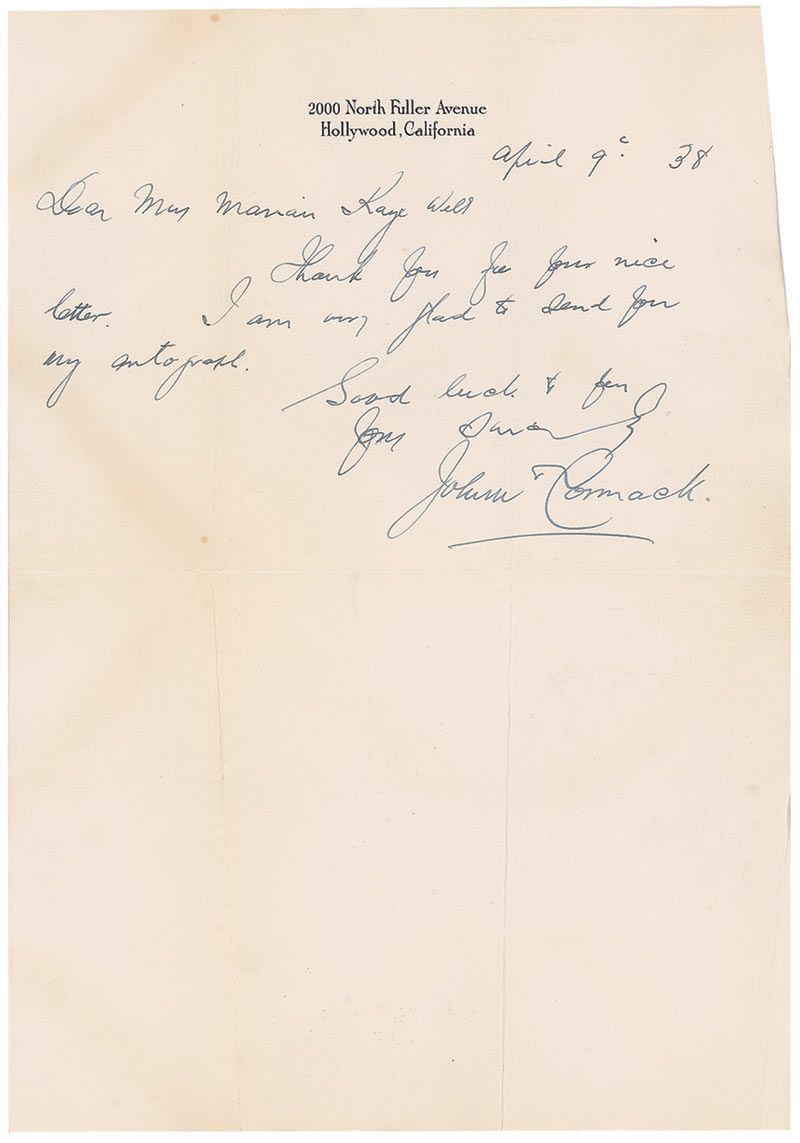 2000 North Fuller Avenue
Hollywood, California
April 9th 38
Dear Mrs Marian Kaye Well
Thank you for your nice
letter. I am very glad to send you
my autograph.
Good luck to you
Yours
John McCormack.